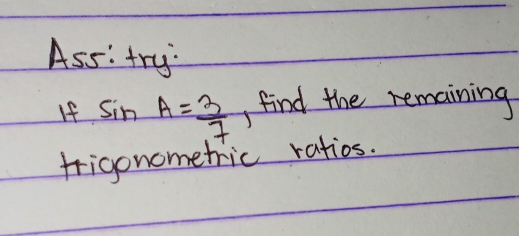 Ass: try:
If Sin A = 3/7, find the remaining
trigonometric ratios.